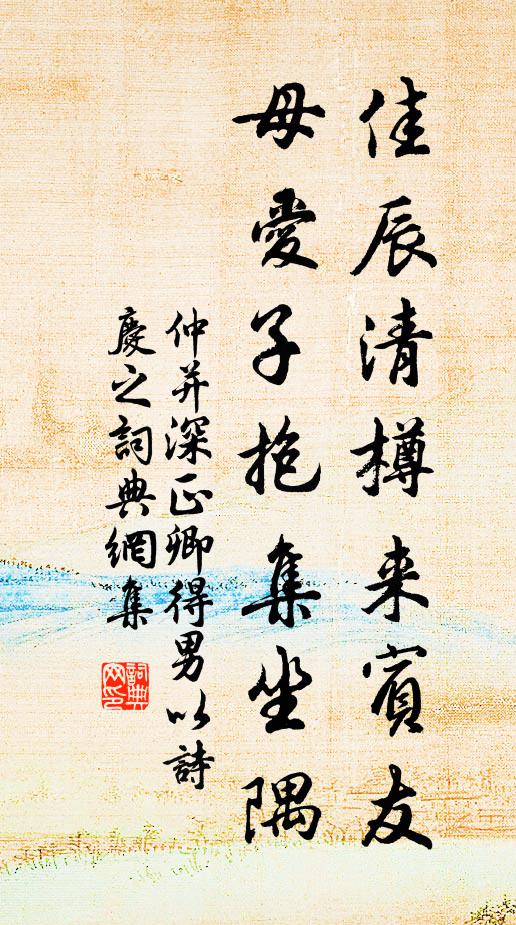 佳辰清樽来賓友
母愛子抱集坐隅
仲并深正卿得男以詩
慶之詞典網集
詞典
网印